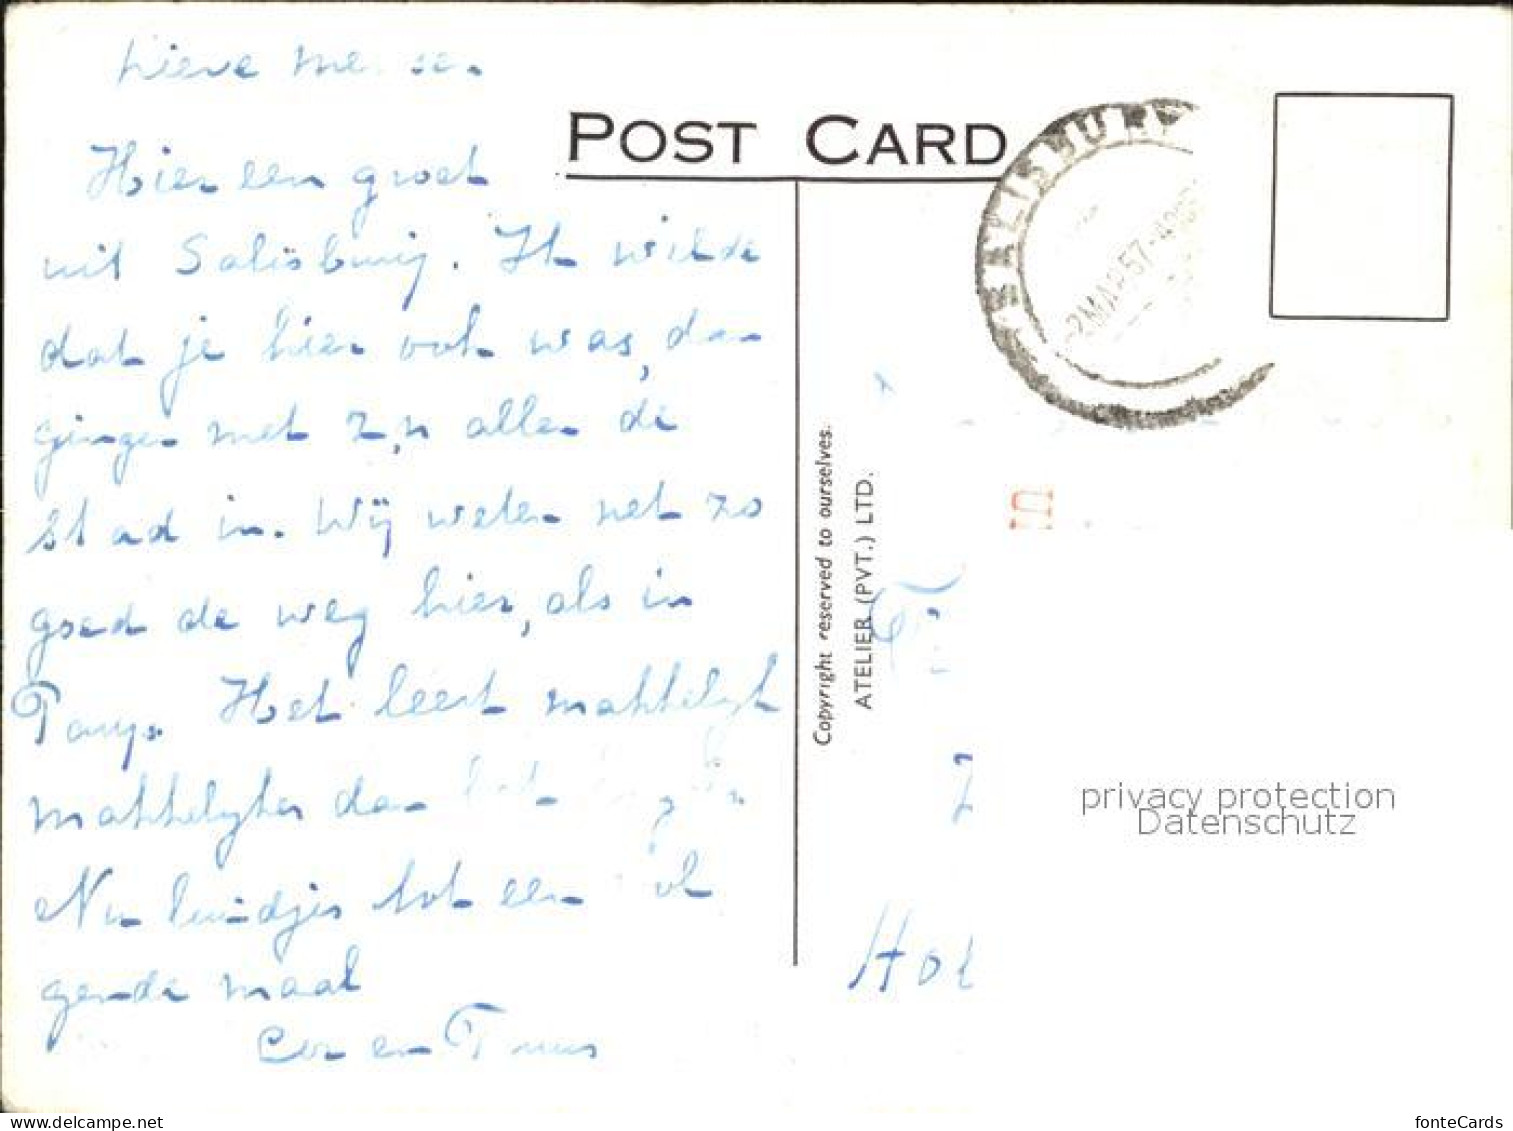 Lieve mense.
Hier een groet
uit Salisbury. Ik wilde
dat je hier ook was, dan
gingen met z,n allen de
stad in. Wij weten net zo
goed de weg hier, als in
Het leert makkelyk
makkelyker dan
Nu luidjes tot een vol
gende maal
Cor en Truus
POST CARD
SALISBURY
2 MAR 57
Copyright reserved to ourselves.
ATELIER (PVT.) LTD.
Hol
privacy protection
Datenschutz
fonteCards